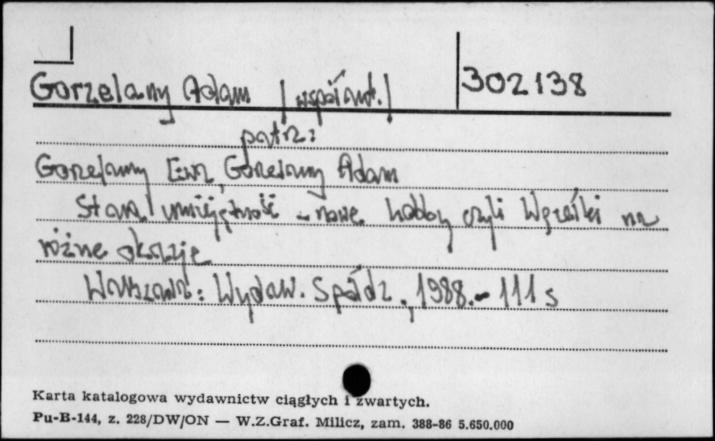 Gorzelany Adam /współaut./ 302138
patrz:
Gorzelany Ewa, Gorzelany Adam
Stara umiejętność - nowe hobby czyli Węzełki na
różne okazje
Warszawa: Wydaw. Spółdz., 1988.- 111 s
Karta katalogowa wydawnictw ciągłych i zwartych.
Pu-B-144, z. 228/DW/ON — W.Z.Graf. Milicz, zam. 388-86 5.650.000